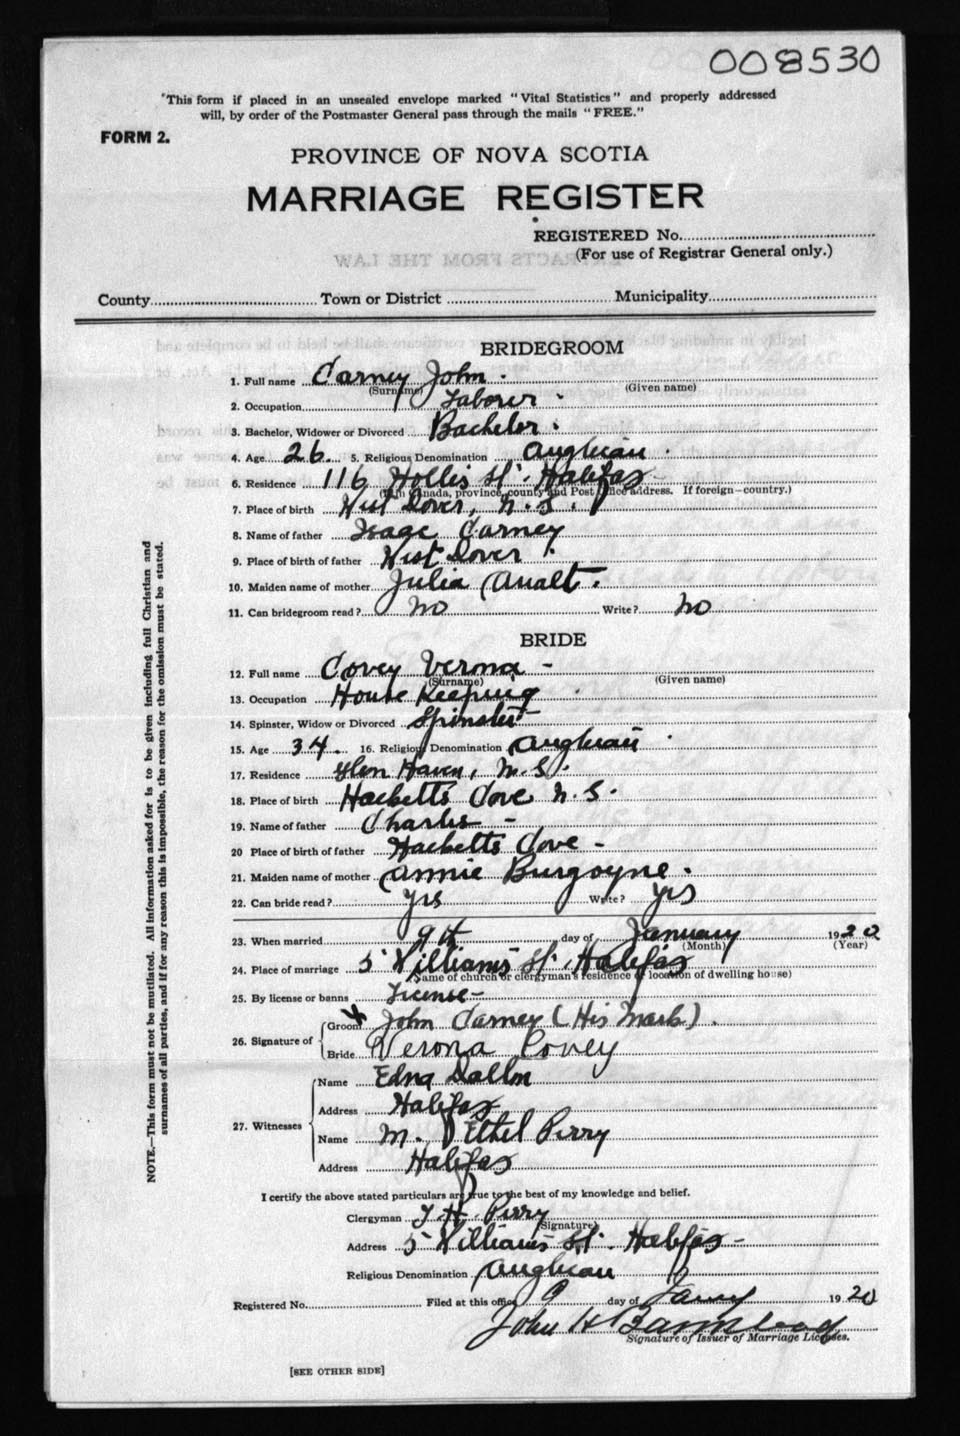 008530
"This form if placed in an unsealed envelope marked "Vital Statistics" and properly addressed
will, by order of the Postmaster General pass through the mails "FREE."
FORM 2.
PROVINCE OF NOVA SCOTIA
MARRIAGE REGISTER
REGISTERED No.
(For use of Registrar General only.)
County Town or District Municipality
BRIDEGROOM
1. Full name Carney John.
(Surname) (Given name)
2. Occupation Laborer
3. Bachelor, Widower or Divorced Bachelor.
4. Age 26 5. Religious Denomination Anglican.
6. Residence 116 Hollis St. Halifax
(If in Canada, province, county and Post Office address. If foreign—country.)
7. Place of birth West Dover, N.S.
8. Name of father Isaac Carney
9. Place of birth of father West Dover.
10. Maiden name of mother Julia
11. Can bridegroom read? No Write? No
BRIDE
12. Full name Covey Verona -
(Surname) (Given name)
13. Occupation House Keeping
14. Spinster, Widow or Divorced Spinster
15. Age 34 16. Religious Denomination Anglican
17. Residence Glen Haven, N.S.
18. Place of birth Hacketts Cove N.S.
19. Name of father Charles -
20 Place of birth of father Hacketts Cove -
21. Maiden name of mother Annie Burgoyne.
22. Can bride read? Yes Write? Yes
23. When married 9th day of January 1920
(Month) (Year)
24. Place of marriage 5 Williams St. Halifax
(Name of church or clergyman's residence or location of dwelling house)
25. By license or banns License -
26. Signature of Groom X John Carney (His Mark).
Bride Verona Covey
27. Witnesses
Name Edna
Address Halifax
Name M. Ethel Perry
Address Halifax
I certify the above stated particulars are true to the best of my knowledge and belief.
Clergyman T. H. Perry
(Signature)
Address 5 Williams St. Halifax -
Religious Denomination Anglican
Registered No. Filed at this office 9 day of Jany 1920
John H Barnstead
Signature of Issuer of Marriage Licenses.
[SEE OTHER SIDE]
NOTE.—This form must not be mutilated. All information asked for is to be given including full Christian and
surnames of all parties, and if for any reason this is impossible, the reason for the omission must be stated.